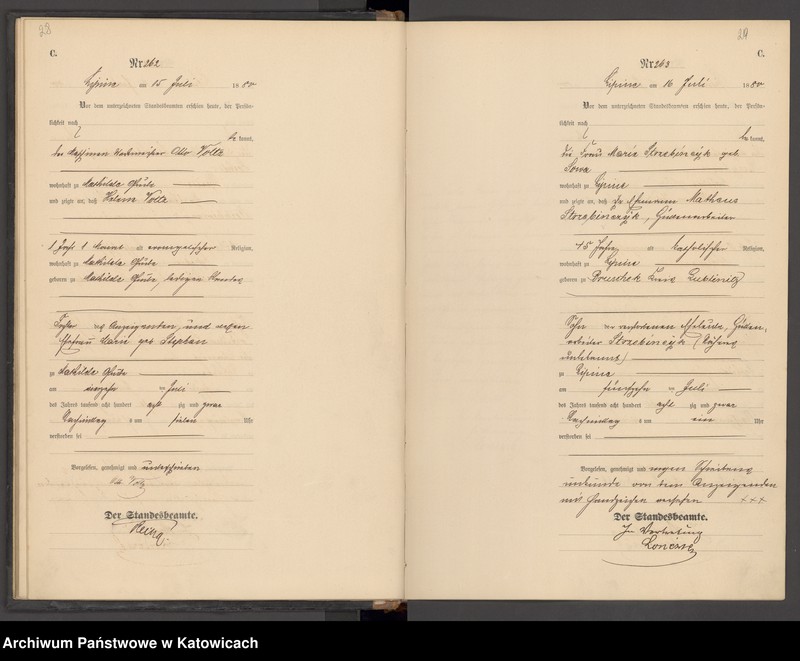 28
C.
Nr 262
Lipine am 15 Juli 1880
Vor dem unterzeichneten Standesbeamten erschien heute, der Persön-
lichkeit nach
be kannt,
Otto Voltz
wohnhaft zu Mathilde Grube
und zeigte an, daß Helene Voltz
1 Jahr 1 Monat alt evangelischer Religion,
wohnhaft zu Mathilde Grube
geboren zu Mathilde Grube, ledigen Standes
Tochter des Anzeigenden, und dessen
Ehefrau Marie geb Stephan
zu Mathilde Grube
am ten Juli
des Jahres tausend acht hundert acht zig und zwar
Nachmittag s um sieben Uhr
verstorben sei
Vorgelesen, genehmigt und unterschrieben
Otto Voltz
Der Standesbeamte.
29
C.
Nr 263
Lipine am 16 Juli 1880
Vor dem unterzeichneten Standesbeamten erschien heute, der Persön-
lichkeit nach
be kannt,
die Frau Marie Skorzbinczyk geb
Sowa
wohnhaft zu Lipine
und zeigte an, daß ihr Ehemann Mathaus
Hüttenarbeiter
45 Jahre alt katholischer Religion,
wohnhaft zu Lipine
geboren zu Kreis Lublinitz
Sohn der verstorbenen Eheleute, Hütten-
arbeiter
unbekannt)
zu Lipine
am fünfzehn ten Juli
des Jahres tausend acht hundert acht zig und zwar
Nachmittag s um ein Uhr
verstorben sei
Vorgelesen, genehmigt und wegen Schreibens
unkunde von dem Anzeigenden
mit Handzeichen versehen +++
Der Standesbeamte.
In Vertretung
Archiwum Państwowe w Katowicach